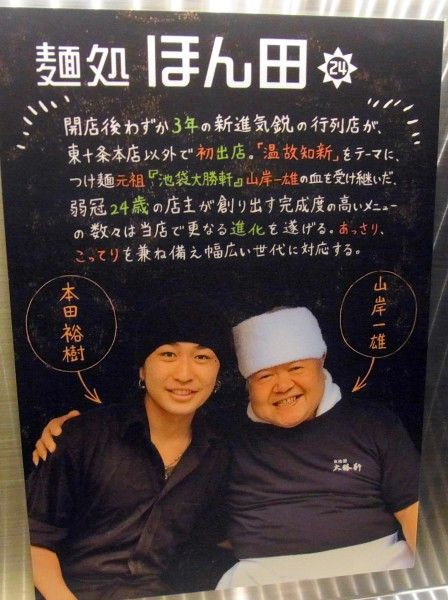 麺処 ほん田 24
開店後わずか3年の新進気鋭の行列店が、
東十条本店以外で初出店。「温故知新」をテーマに、
つけ麺元祖『池袋大勝軒』山岸一雄の血を受け継いだ、
弱冠24歳の店主が創り出す完成度の高いメニュー
の数々は当店で更なる進化を遂げる。あっさり、
こってりを兼ね備え幅広い世代に対応する。
本田裕樹
山岸一雄
大勝軒